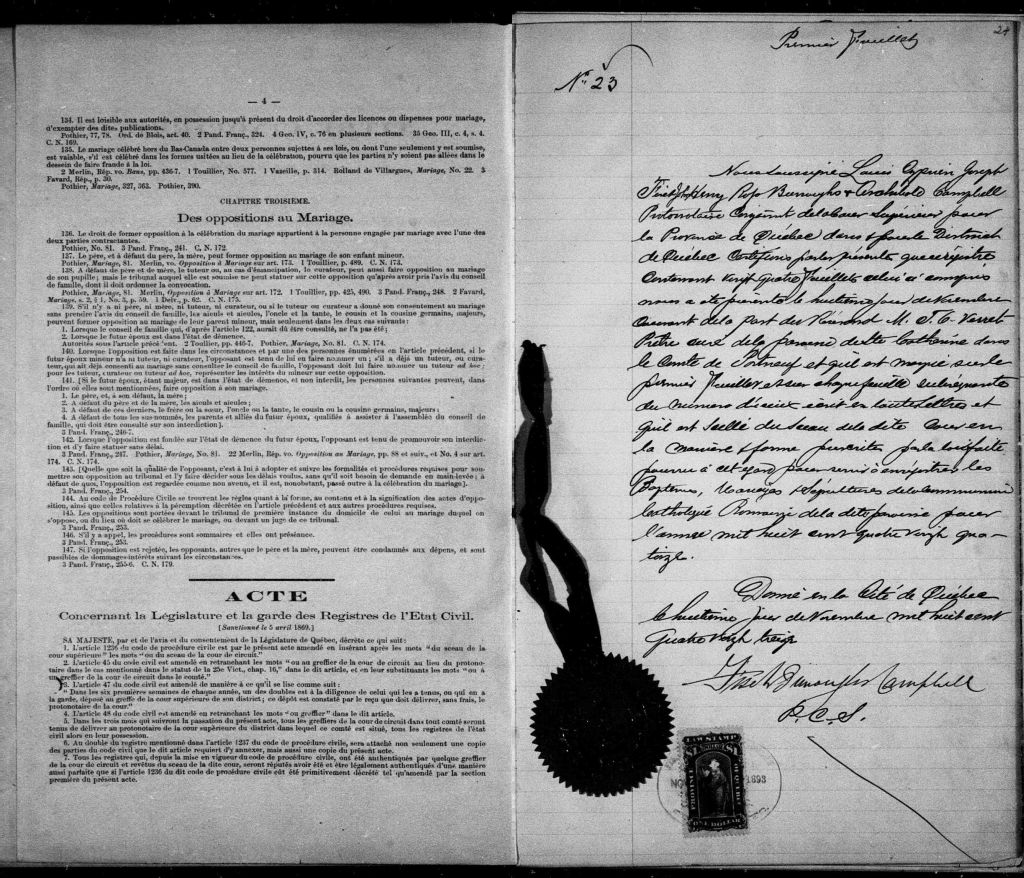 — 4 —
134. Il est loisible aux autorités, en possession jusqu'à présent du droit d'accorder des licences ou dispenses pour mariage,
d'exempter des dites publications.
Pothier, 77, 78. Ord. de Blois, art. 40. 2 Pand. Franç., 324. 4 Geo. IV, c. 76 en plusieurs sections. 35 Geo. III, c. 4, s. 4.
C. N. 169.
135. Le mariage célébré hors du Bas-Canada entre deux personnes sujettes à ses lois, ou dont l'une seulement y est soumise,
est valable, s'il est célébré dans les formes usitées au lieu de la célébration, pourvu que les parties n'y soient pas allées dans le
dessein de faire fraude à la loi.
2 Merlin, Rép. vo. Bans, pp. 436-7. 1 Touillier, No. 577. 1 Vazeille, p. 314. Rolland de Villargues, Mariage, No. 22. 3
Favard, Rép., p. 30.
Pothier, Mariage, 327, 363. Pothier, 390.
CHAPITRE TROISIÈME.
Des oppositions au Mariage.
136. Le droit de former opposition à la célébration du mariage appartient à la personne engagée par mariage avec l'une des
deux parties contractantes.
Pothier, No. 81. 3 Pand. Franç., 241. C, N. 172.
137. Le père, et à défaut du père, la mère, peut former opposition au mariage de son enfant mineur.
Pothier, Mariage, 81. Merlin, vo. Opposition à Mariage sur art. 173. 1 Touillier, p. 489. C. N. 173.
138. A défaut de père et de mère, le tuteur ou, au cas d'émancipation, le curateur, peut aussi faire opposition au mariage
de son pupille; mais le tribunal auquel elle est soumise ne peut statuer sur cette opposition qu'après avoir pris l'avis du conseil
de famille, dont il doit ordonner la convocation.
Pothier, Mariage, 81. Merlin, Opposition à Mariage sur art. 172. 1 Touillier, pp. 425, 490. 3 Pand. Franç., 248. 2 Favard,
Mariage, s. 2, § 1, No. 3, p. 59. 1 Delv., p. 62. C. N. 175.
139. S'il n'y a ni père, ni mère, ni tuteur, ni curateur, ou si le tuteur ou curateur a donné son consentement au mariage
sans prendre l'avis du conseil de famille, les aieuls et aieules, l'oncle et la tante, le cousin et la cousine germains, majeurs,
peuvent former opposition au mariage de leur parent mineur, mais seulement dans les deux cas suivants:
1. Lorsque le conseil de famille qui, d'après l'article 122, aurait dû être consulté, ne l'a pas été;
2. Lorsque le futur époux est dans l'état de démence.
Autorités sous l'article précédent. 2 Touillier, pp. 446-7. Pothier, Mariage, No. 81. C. N. 174.
140. Lorsque l'opposition est faite dans les circonstances et par une des personnes énumérées en l'article précédent, si le
futur époux mineur n'a ni tuteur, ni curateur, l'opposant est tenu de lui en faire nommer un; s'il a déjà un tuteur, ou cura-
teur, qui ait déjà consenti au mariage sans consulter le conseil de famille, l'opposant doit lui faire nommer un tuteur ad hoc;
pour les tuteur, curateur ou tuteur ad hoc, représenter les intérêts du mineur sur cette opposition.
141. [Si le futur époux, étant majeur, est dans l'état de démence, et non interdit, les personnes suivantes peuvent, dans
l'ordre où elles sont mentionnées, faire opposition à son mariage.
1. Le père, et, à son défaut, la mère;
2. A défaut du père et de la mère, les aieuls et aieules;
3. A défaut de ces derniers, le frère ou la sœur, l'oncle ou la tante, le cousin ou la cousine germains, majeurs;
4. A défaut de tous les sus-nommés, les parents et alliés du futur époux, qualifiés à assister à l'assemblée du conseil de
famille, qui doit être consulté sur son interdiction].
3 Pand. Franç., 246-7.
142. Lorsque l'opposition est fondée sur l'état de démence du futur époux, l'opposant est tenu de promouvoir son interdic-
tion et d'y faire statuer sans délai.
3 Pand. Franç., 247. Pothier, Mariage, No. 81. 22 Merlin, Rép. vo. Opposition au Mariage, pp. 88 et suiv., et No. 4 sur art.
174. C. N. 174.
143. [Quelle que soit la qualité de l'opposant, c'est à lui à adopter et suivre les formalités et procédures requises pour sou-
mettre son opposition au tribunal et l'y faire décider sous les délais voulus, sans qu'il soit besoin de demande en main-levée; à
défaut de quoi, l'opposition est regardée comme non avenue, et il est, nonobstant, passé outre à la célébration du mariage].
3 Pand. Franç., 254.
144. Au code de Procédure Civile se trouvent les règles quant à la forme, au contenu et à la signification des actes d'oppo-
sition, ainsi que celles relatives à la péremption décrétée en l'article précédent et aux autres procédures requises.
145. Les oppositions sont portées devant le tribunal de première instance du domicile de celui au mariage duquel on
s'oppose, ou du lieu où doit se célébrer le mariage, ou devant un juge de ce tribunal.
3 Pand. Franç., 253.
146. S'il y a appel, les procédures sont sommaires et elles ont préséance.
3 Pand. Franç., 253.
147. Si l'opposition est rejetée, les opposants, autres que le père et la mère, peuvent être condamnés aux dépens, et sont
passibles de dommages-intérêts suivant les circonstances.
3 Pand. Franç., 255-6. C. N. 179.
ACTE
Concernant la Législature et la garde des Registres de l'Etat Civil.
[Sanctionné le 5 avril 1869.]
SA MAJESTÉ, par et de l'avis et du consentement de la Législature de Québec, décrète ce qui suit:
1. L'article 1236 du code de procédure civile est par le présent acte amendé en insérant après les mots "du sceau de la
cour supérieure" les mots "ou du sceau de la cour de circuit."
2. L'article 45 du code civil est amendé en retranchant les mots "ou au greffier de la cour de circuit au lieu du protono-
taire dans le cas mentionné dans le statut de la 25e Vict., chap. 16," dans le dit article, et en leur substituants les mots "ou à
un greffier de la cour de circuit dans le comté."
3. L'article 47 du code civil est amendé de manière à ce qu'il se lise comme suit:
"Dans les six premières semaines de chaque année, un des doubles est à la diligence de celui qui les a tenus, ou qui en a
la garde, déposé au greffe de la cour supérieure de son district; ce dépôt est constaté par le reçu que doit délivrer, sans frais, le
protonotaire de la cour."
4. L'article 48 du code civil est amendé en retranchant les mots "ou greffier" dans le dit article.
5. Dans les trois mois qui suivront la passation du présent acte, tous les greffiers de la cour de circuit dans tout comté seront
tenus de délivrer au protonotaire de la cour supérieure du district dans lequel ce comté est situé, tous les registres de l'état
civil alors en leur possession.
6. Au double du registre mentionné dans l'article 1237 du code de procédure civile, sera attaché non seulement une copie
des parties du code civil que le dit article requiert d'y annexer, mais aussi une copie du présent acte.
7. Tous les registres qui, depuis la mise en vigueur du code de procédure civile, ont été authentiqués par quelque greffier
de la cour de circuit et revêtus du sceau de la dite cour, seront réputés avoir été et être légalement authentiqués d'une manière
aussi parfaite que si l'article 1236 du dit code de procédure civile eût été primitivement décrété tel qu'amendé par la section
première du présent acte.
24
Premier feuillet
No 23
Nous soussigné Louis Cyprien Joseph
Fiset, Henry Burroughs & Archibald Campbell
Protonotaire Conjoint de la Cour Supérieur pour
la Province de Québec dans & pour le District
de Québec Certifions par les présentes que ce régistre
Contenant vingt quatre feuillets celui-ci compris
nous a été présenté le huitième jour de Novembre
Courant de la part du Révérend M. Verret
Prêtre curé de la paroisse de Ste Catherine dans
le Comté de Portneuf et qu'il est marqué sur le
premier feuillet et sur chaque feuille subséquente
du numero d'iceux écrit en toutes lettres et
qu'il est Scellé du Sceau de la dite Cour en
la manière & forme prescrite par la loi faite
pourvu à cet égard pour servir à enrégistrer les
Baptêmes, Mariages & Sépultures de la Communion
Catholique Romaine de la dite paroisse pour
l'année mil huit cent quatre vingt qua-
torze.
Donné en la Cité de Québec
le huitième jour de Novembre mil huit cent
Quatre vingt treize
Fiset Burroughs Campbell
P. C. S.
LAW STAMP
PROVINCE
QUEBEC
ONE DOLLAR
NO
1893